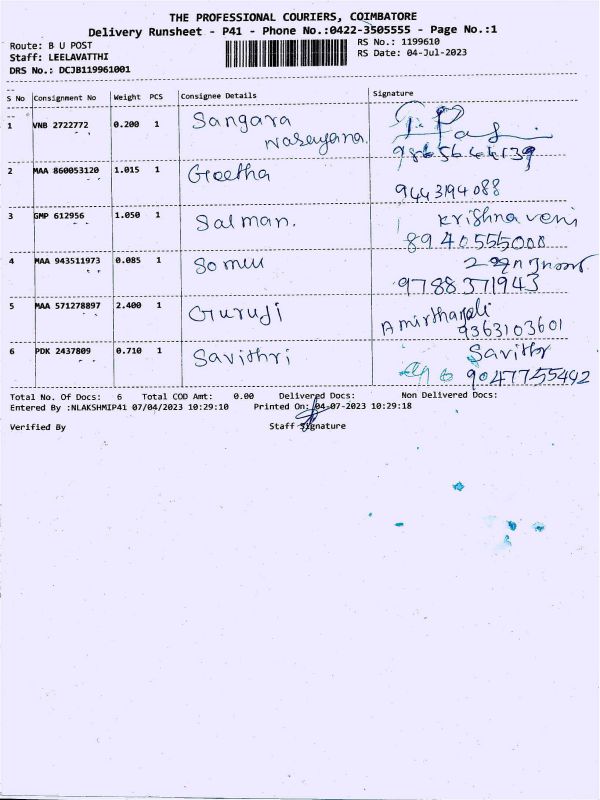 THE PROFESSIONAL COURIERS, COIMBATORE
Delivery Runsheet - P41 - Phone No.:0422-3505555 - Page No.:1
Route: B U POST RS No.: 1199610
Staff: LEELAVATTHI RS Date: 04-Jul-2023
DRS No.: DCJB119961001
S No Consignment No Weight PCS Consignee Details Signature
1 VNB 2722772 0.200 1 Sangara
Narayana.
2 MAA 860053120 1.015 1 Geetha
9443194088
3 GMP 612956 1.050 1 Salman. Krishna veni
8940555008
4 MAA 943511973 0.085 1 Somu
9788371943
5 MAA 571278897 2.400 1 Guruji Amirthavalli
9363103601
6 PDK 2437809 0.710 1 Savithri Savithr
9047755492
Total No. Of Docs: 6 Total COD Amt: 0.00 Delivered Docs: Non Delivered Docs:
Entered By :NLAKSHMIP41 07/04/2023 10:29:10 Printed On: 04-07-2023 10:29:18
Verified By Staff Signature